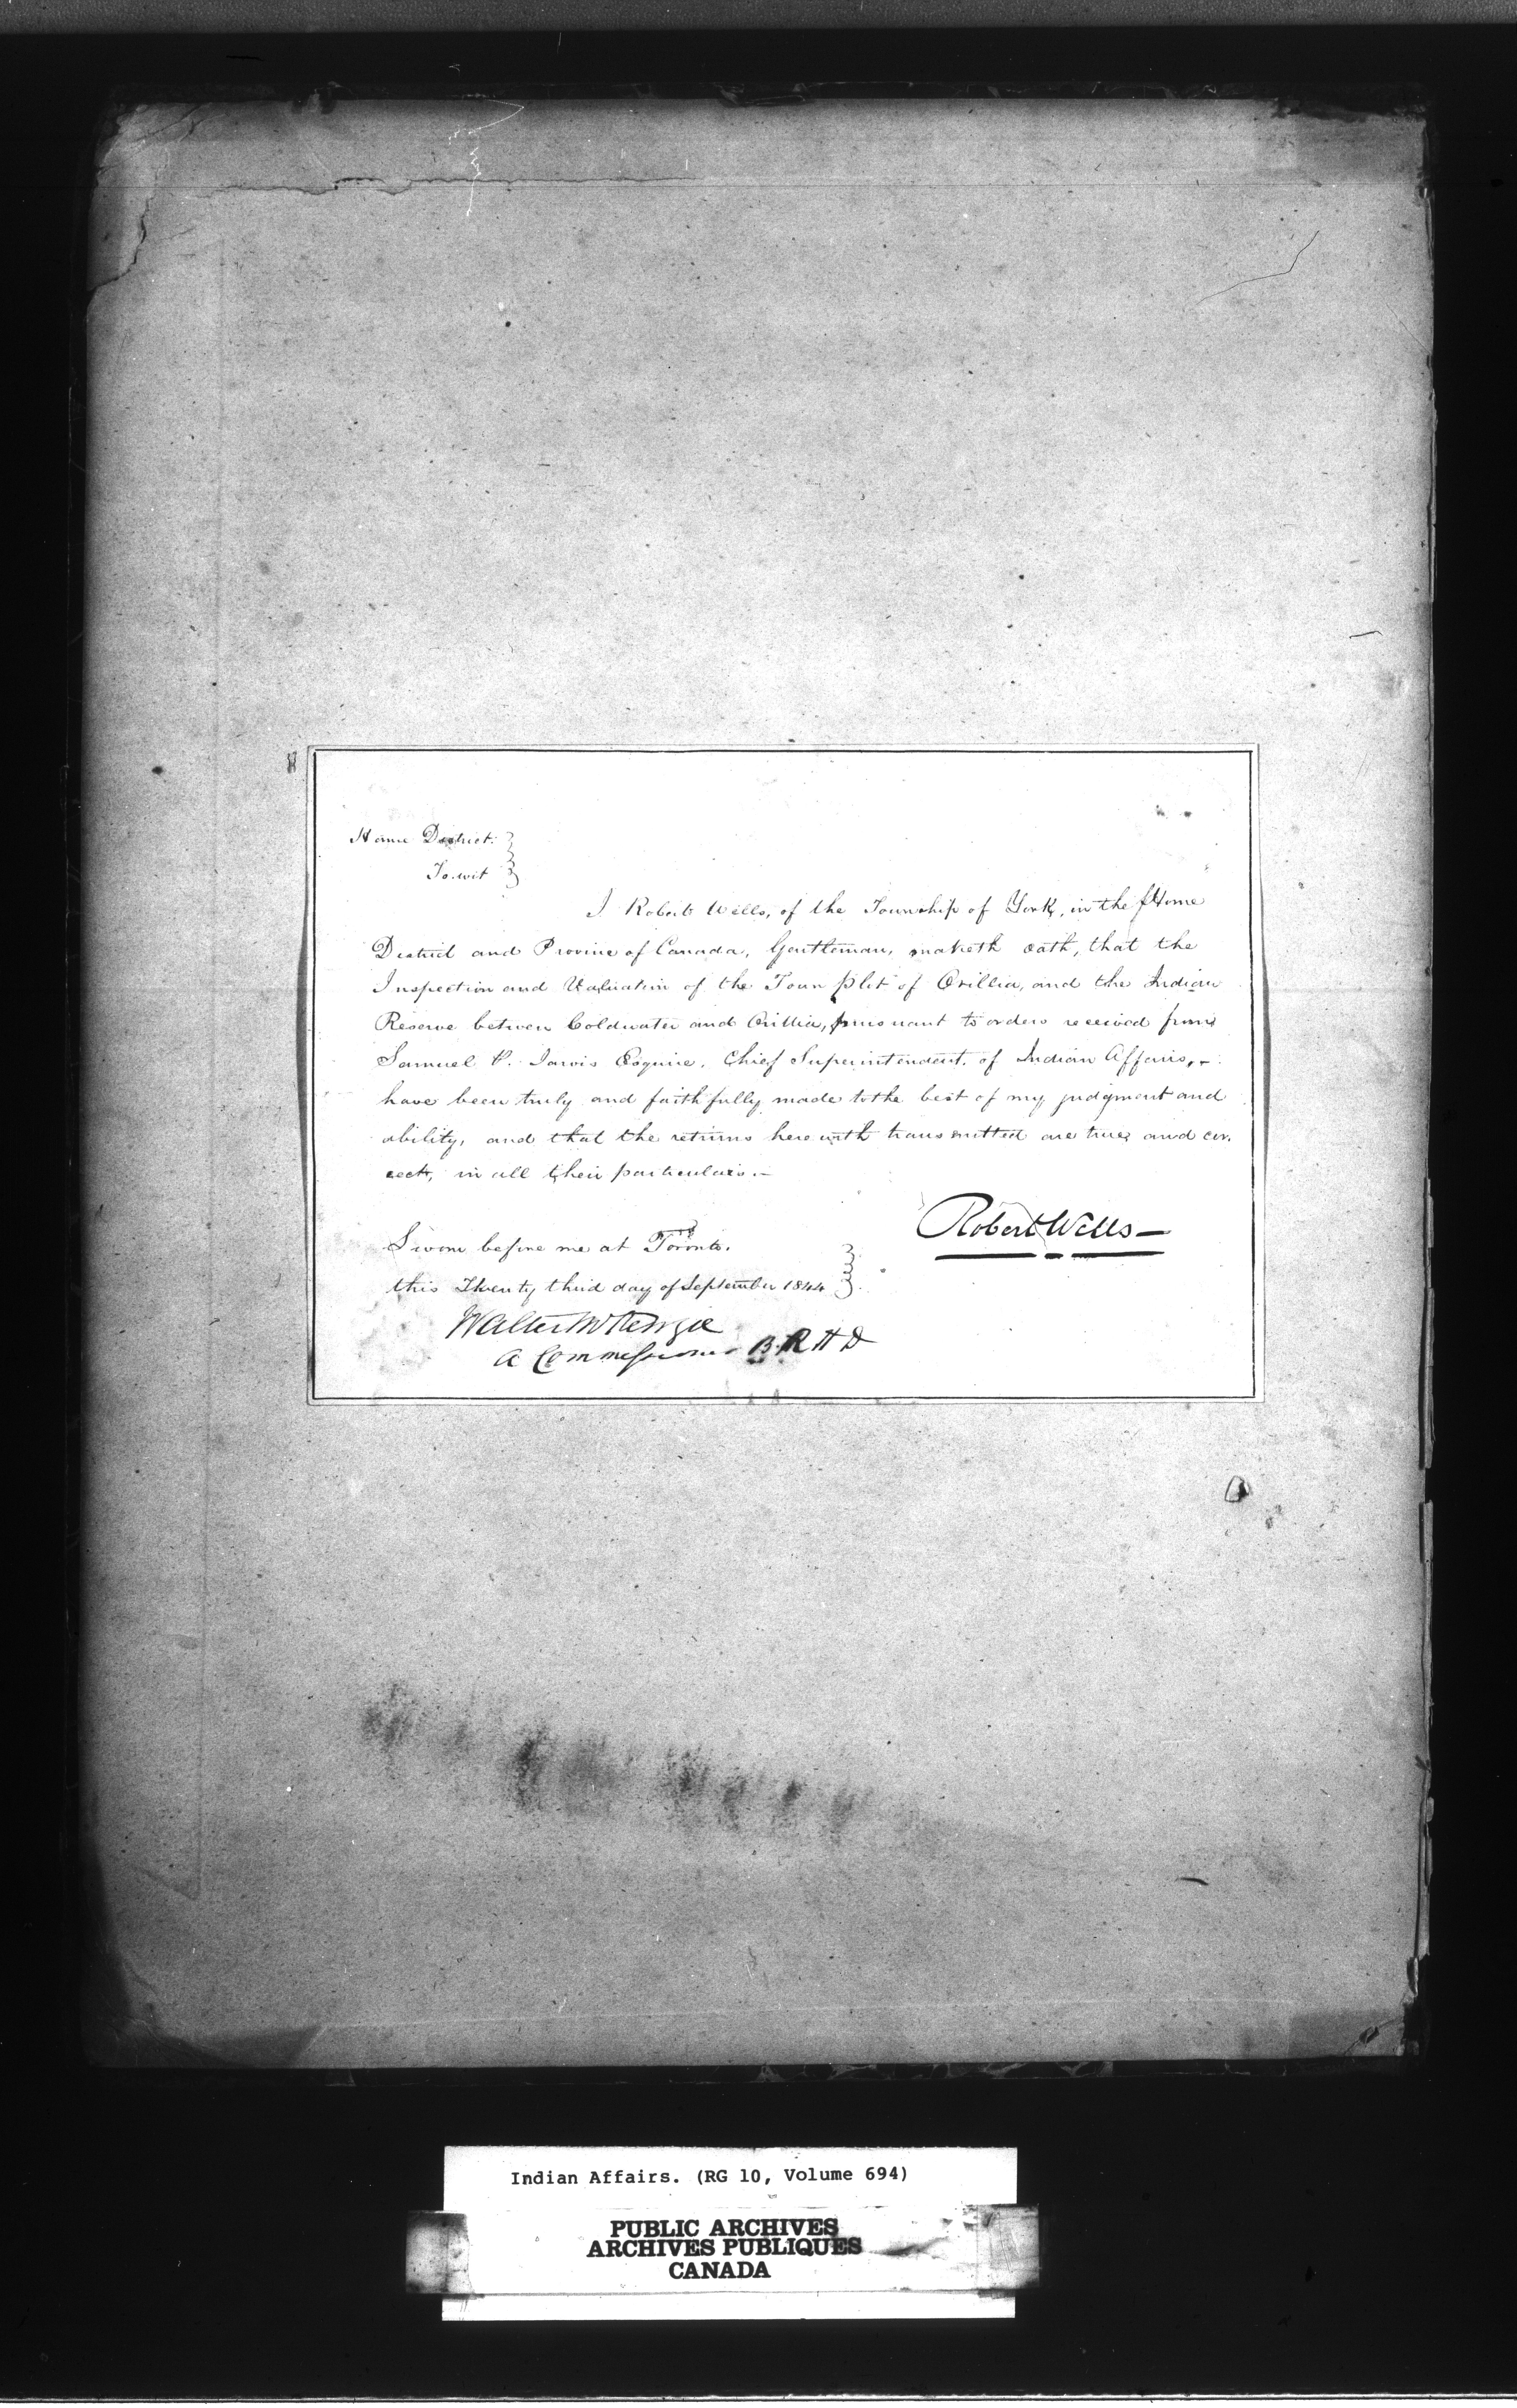 Home District.
To wit
I Robert Wells, of the Township of York, in the Home
District and Province of Canada, Gentleman, maketh oath, that the
Inspection and Valuation of the Town Plot of Orillia, and the Indian
Reserve between Coldwater and Orillia, pursuant to orders received from
Samuel P. Jarvis Esquire, Chief Superintendent of Indian Affairs,-
have been truly and faithfully made to the best of my judgment and
ability, and that the returns herewith transmitted are true, and cor-
rect, in all their particulars.-
Robert Wells-
Sworn before me at Toronto.
this Twenty third day of September 1844
Walter McKenzie
A Commissioner B.R H D
Indian Affairs. (RG 10, Volume 694)
PUBLIC ARCHIVES
ARCHIVES PUBLIQUES
CANADA